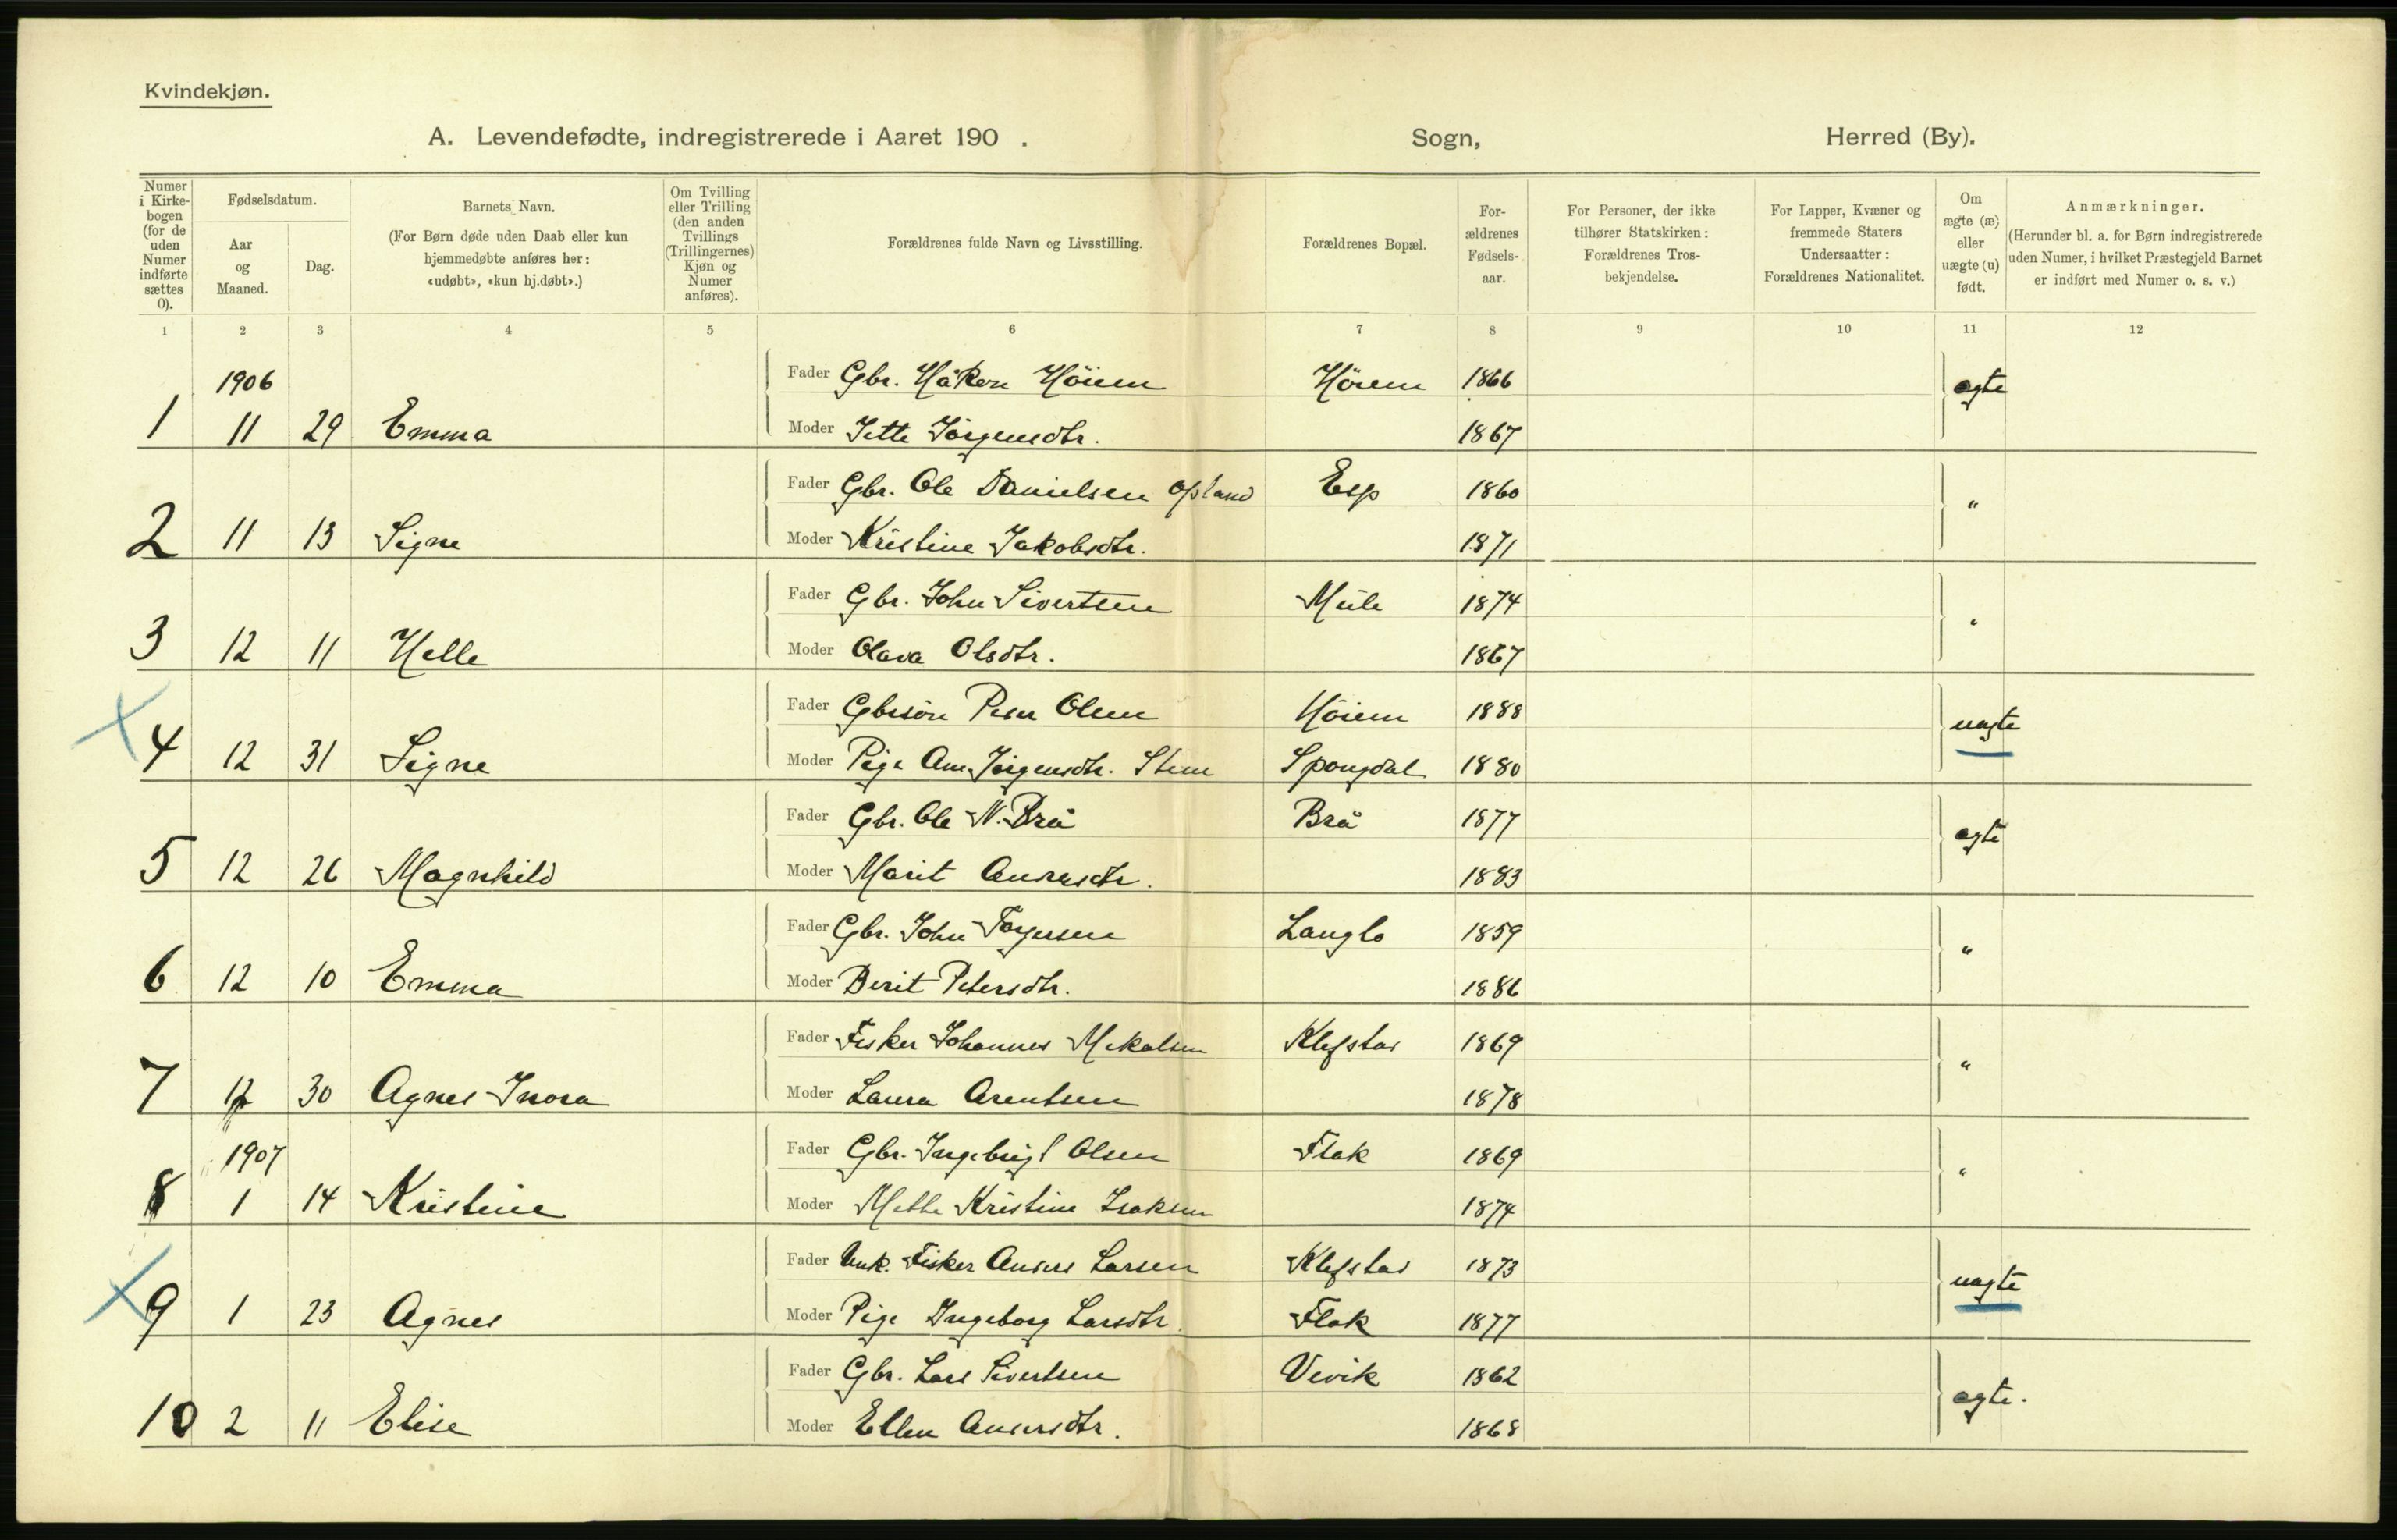 Kvindekjøn.
A. Levendefødte, indregistrerede i Aaret 190 . Sogn, Herred (By).
Numer i Kirkebogen (for de uden Numer indførte sættes 0).
Fødselsdatum.
Aar og Maaned.
Dag.
Barnets Navn.
(For Børn døde uden Daab eller kun hjemmedøbte anføres her: «udøbt», «kun hj.døbt».)
Om Tvilling eller Trilling (den anden Tvillings (Trillingernes) Kjøn og Numer anføres).
Forældrenes fulde Navn og Livsstilling.
Forældrenes Bopæl.
Forældrenes Fødselsaar.
For Personer, der ikke tilhører Statskirken: Forældrenes Trosbekjendelse.
For Lapper, Kvæner og fremmede Staters Undersaatter: Forældrenes Nationalitet.
Om ægte (æ) eller uægte (u) født.
Anmærkninger.
(Herunder bl. a. for Børn indregistrerede uden Numer, i hvilket Præstegjeld Barnet er indført med Numer o. s. v.)
1 2 3 4 5 6 7 8 9 10 11 12
1906
Fader Gbr. Håken Höiem Höiem 1866 ægte
1 11 29 Emma Moder Jette Jörgensdtr. 1867
Fader Gbr. Ole Danielsen Opland Esp 1860 "
2 11 13 Signe Moder Kristine Jakobsdtr. 1871
Fader Gbr. John Sivertsen Mule 1874 "
3 12 11 Helle Moder Olava Olsdtr. 1867
Fader Gbrsön Peter Olsen Höiem 1888 uægte
4 12 31 Signe Moder Pige Ane Jörgensdtr. Stene Spongdal 1880
Fader Gbr. Ole N. Brå Brå 1877 ægte
5 12 26 Magnhild Moder Marit Andersdtr. 1883
Fader Gbr. John Torgersen Langlo 1859 "
6 12 10 Emma Moder Berit Petersdtr. 1886
Fader Fisker Johannes Mikalsen Klefstad 1869 "
7 12 30 Agnes Inora Moder Laura Arentsen 1878
1907
Fader Gbr. Ingebrigt Olsen Flak 1869 "
8 1 14 Kristine Moder Mette Kristine Isaksen 1874
Fader Unk. Fisker Anders Larsen Klefstad 1873 uægte
9 1 23 Agnes Moder Pige Ingeborg Larsdtr. Flak 1877
Fader Gbr. Lars Sivertsen Vivik 1862 ægte.
10 2 11 Elise Moder Ellen Andersdtr. 1868